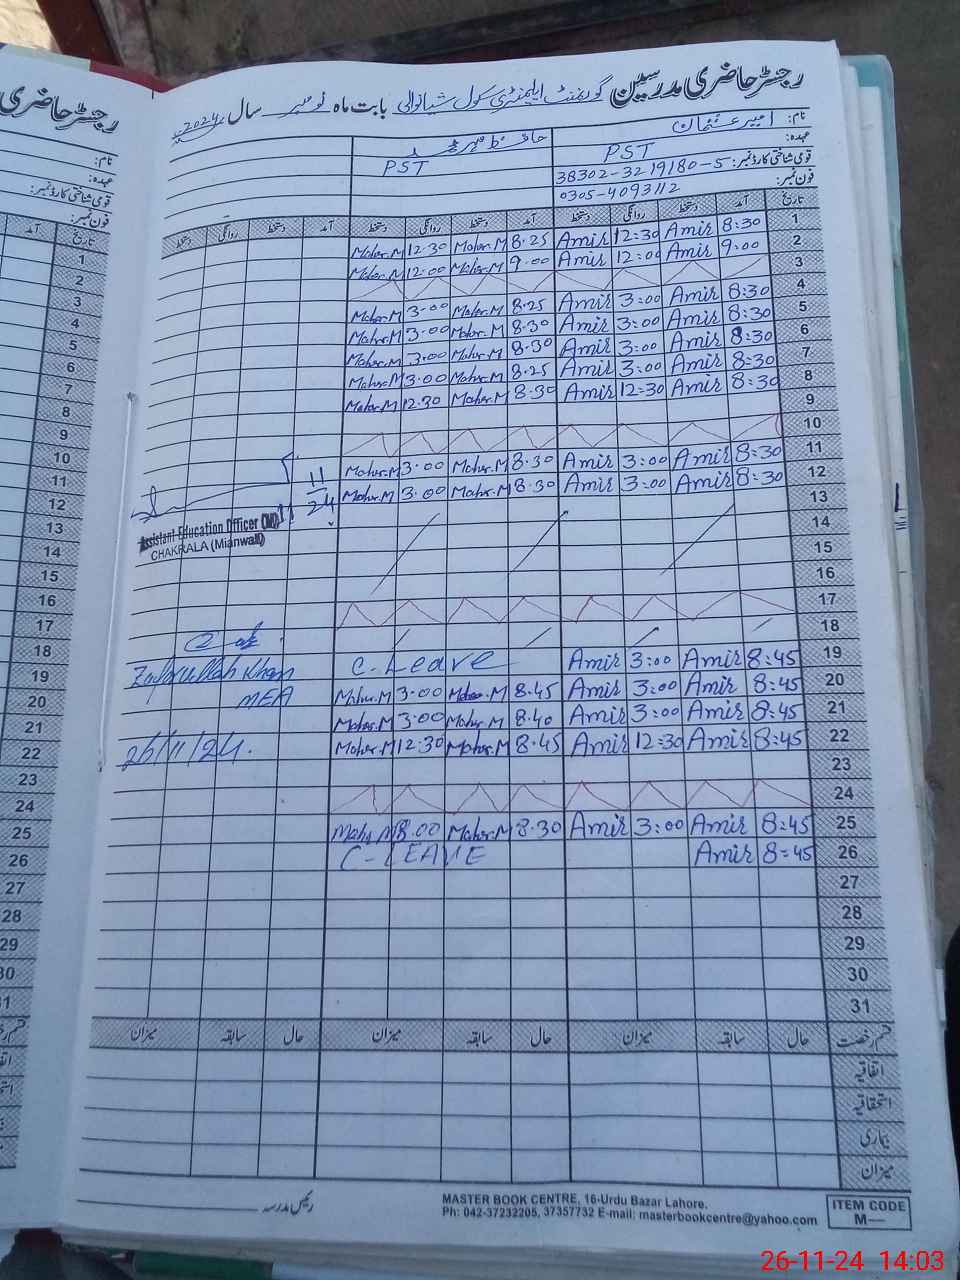 رجسٹر حاضری مدرسین گورنمنٹ ایلیمنٹری سکول شیانوالی بابت ماہ نومبر سال 2024ء
رجسٹر حاضری
نام: امیر عثمان
عہدہ: PST PST
قومی شناختی کارڈ نمبر: 38302-3219180-5
فون نمبر: 0305-4093112
نام:
عہدہ:
قومی شناختی کارڈ نمبر:
فون نمبر:
تاریخ آمد دستخط روانگی دستخط آمد دستخط روانگی دستخط آمد دستخط روانگی دستخط
تاریخ آمد
1 8:30 Amir 12:30 Amir 8.25 Maher.M 12.30 Maher.M
2 9:00 Amir 12:00 Amir 9.00 Maher.M 12.00 Maher.M
3
4 8:30 Amir 3:00 Amir 8.25 Maher.M 3.00 Maher.M
5 8:30 Amir 3:00 Amir 8.30 Maher.M 3.00 Maher.M
6 8:30 Amir 3:00 Amir 8.30 Maher.M 3.00 Maher.M
7 8:30 Amir 3:00 Amir 8.25 Maher.M 3.00 Maher.M
8 8:30 Amir 12:30 Amir 8.30 Maher.M 12.30 Maher.M
9
10
11 8:30 Amir 3:00 Amir 8.30 Maher.M 3.00 Maher.M
12 8:30 Amir 3:00 Amir 8.30 Maher.M 3.00 Maher.M
11
24
Assistant Education Officer (M)
CHAKRALA (Mianwali)
13
14
15
16
17
18
19 8:45 Amir 3:00 Amir C-Leave
20 8:45 Amir 3:00 Amir 8.45 Maher.M 3.00 Maher.M
21 8:45 Amir 3:00 Amir 8.40 Maher.M 3.00 Maher.M
22 8:45 Amir 12:30 Amir 8.45 Maher.M 12.30 Maher.M
Zafarullah Khan
MEA
26/11/24.
23
24
25 8:45 Amir 3:00 Amir 8.30 Maher.M 8.00 Maher.M
26 8:45 Amir C-LEAVE
27
28
29
30
31
1
2
3
4
5
6
7
8
9
10
11
12
13
14
15
16
17
18
19
20
21
22
23
24
25
26
27
28
29
30
31
قسم رخصت حال سابقہ میزان حال سابقہ میزان حال سابقہ میزان
اتفاقیہ
استحقاقیہ
بیماری
میزان
رئیس مدرسہ
MASTER BOOK CENTRE, 16-Urdu Bazar Lahore.
Ph: 042-37232205, 37357732 E-mail: masterbookcentre@yahoo.com
ITEM CODE
M—
26-11-24 14:03